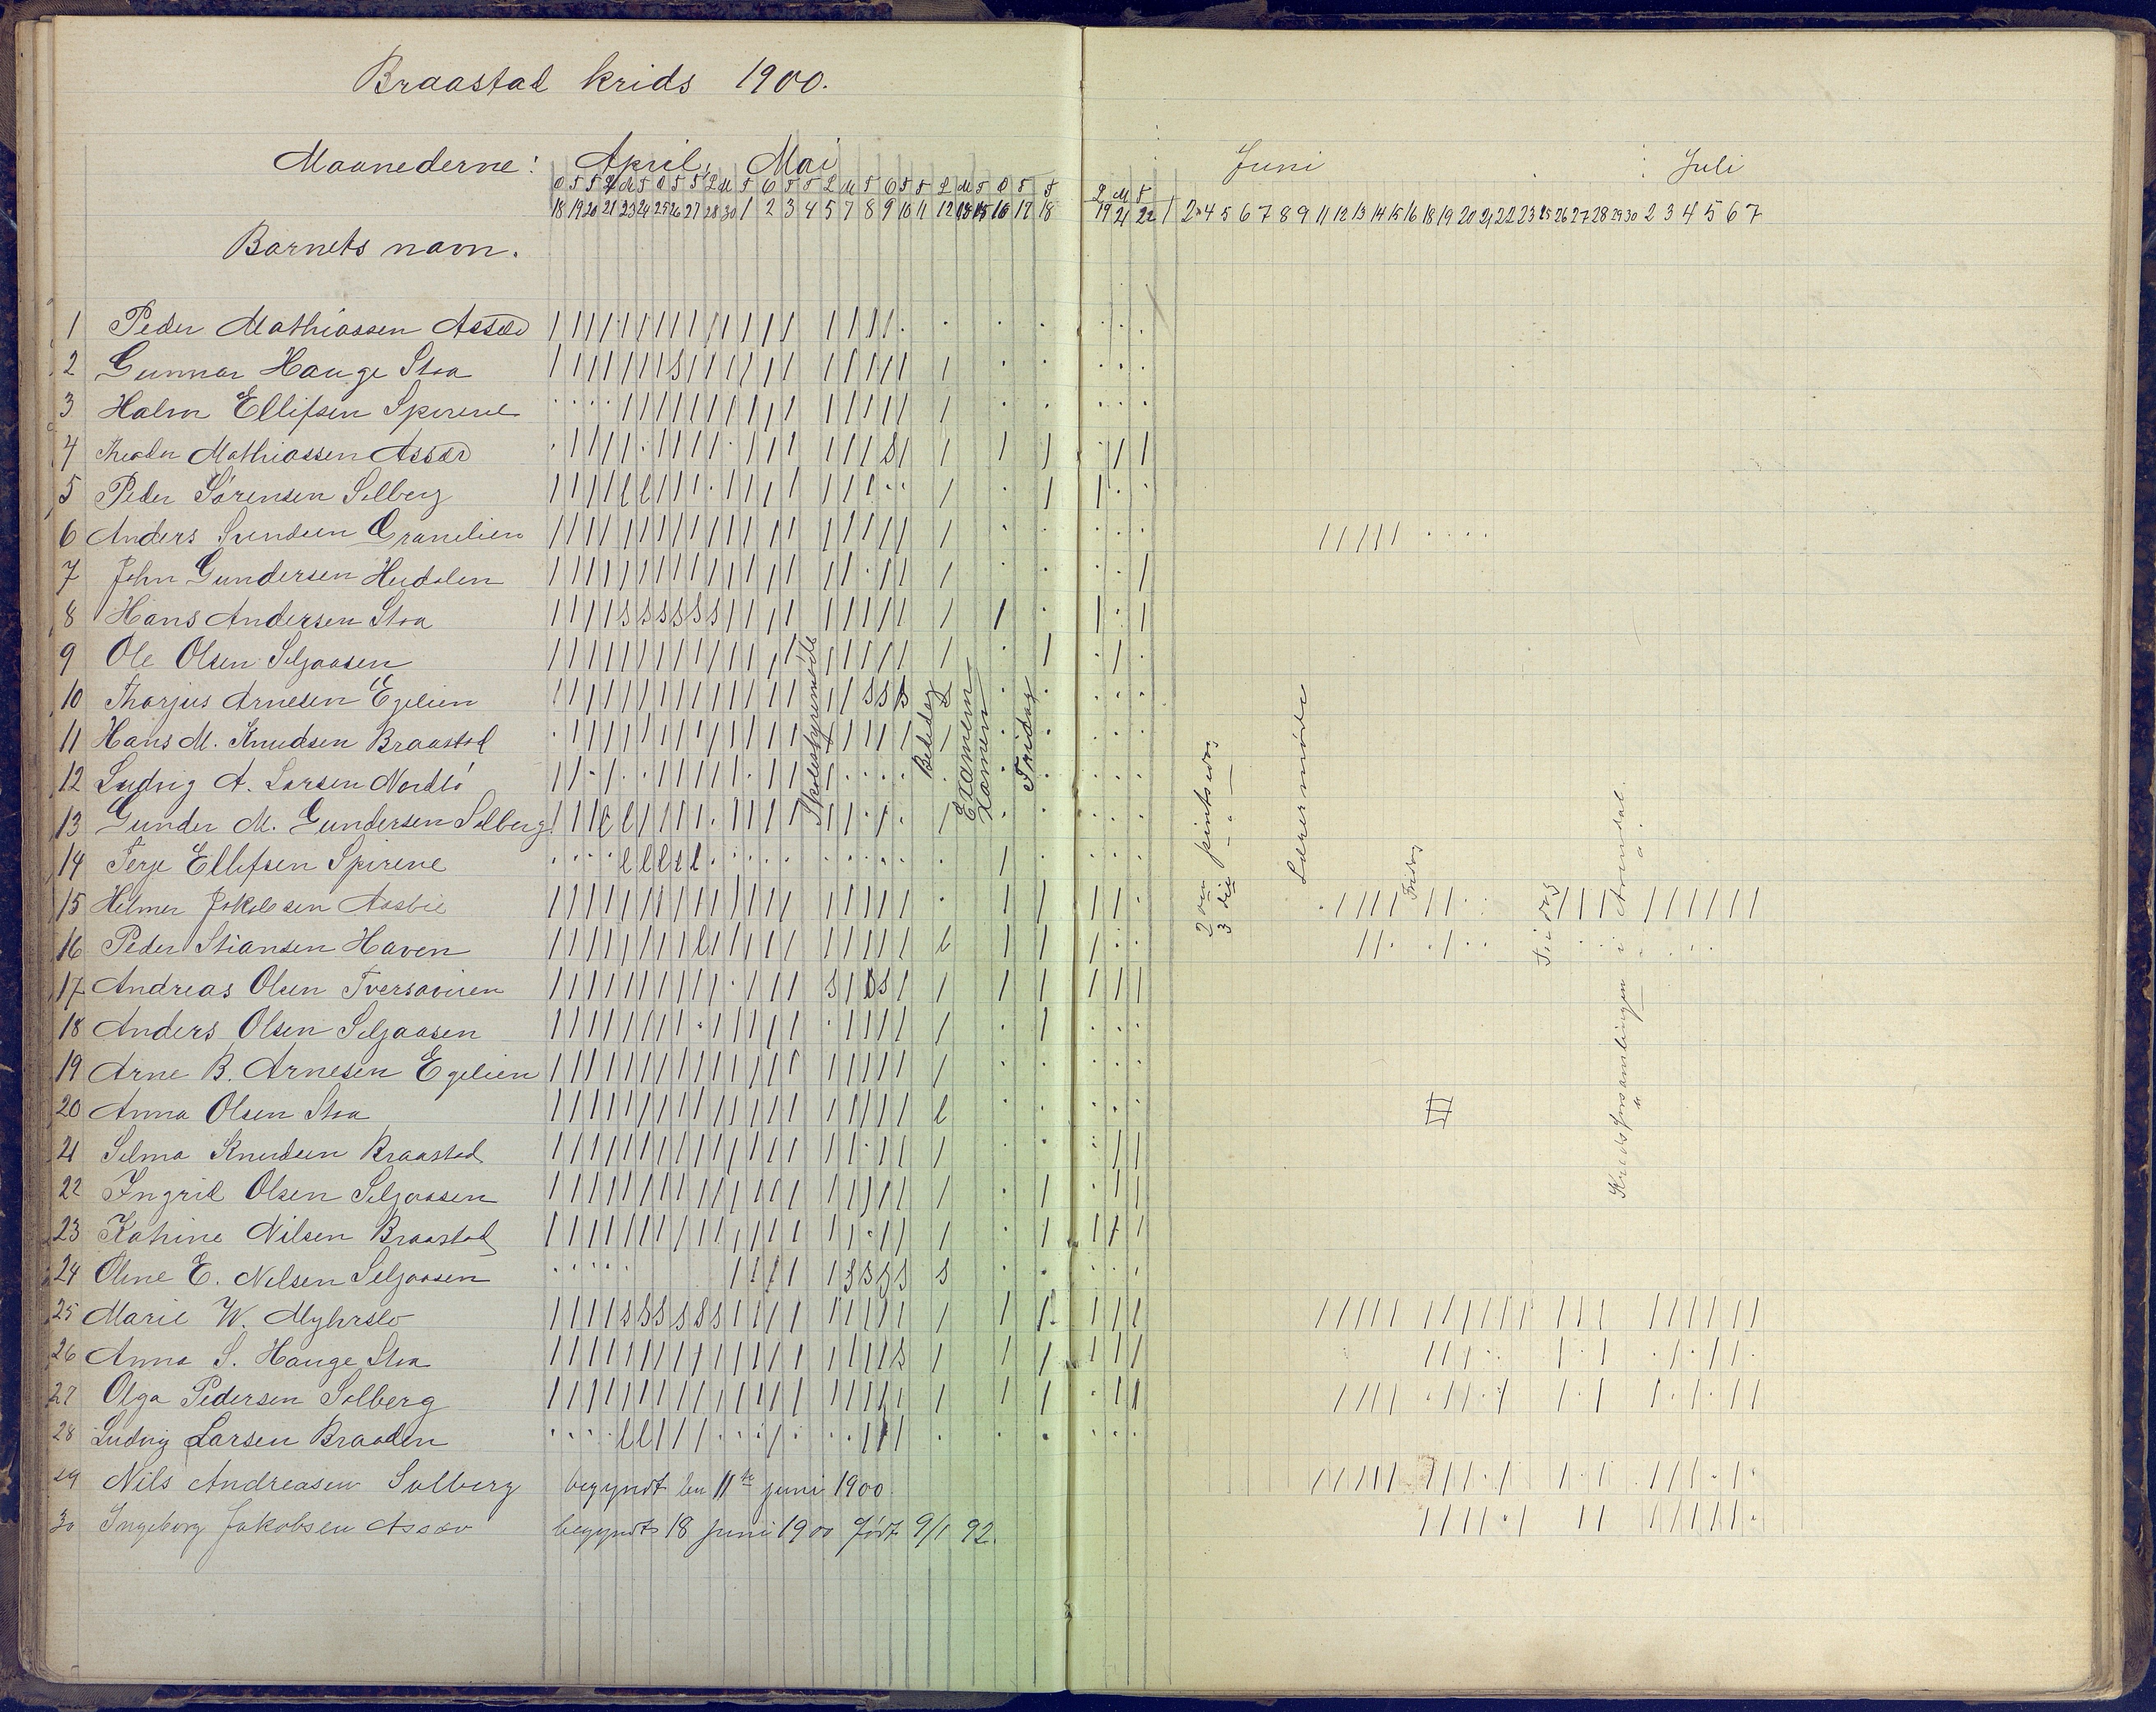 Braastad krids 1900.
Maanederne: April, Mai Juni Juli
18 19 20 21 23 24 25 26 27 28 30 1 2 3 4 5 7 8 9 10 11 12 16 17 18 19 21 22 1 2 4 5 6 7 8 9 11 12 13 14 15 16 18 19 20 21 22 23 25 26 27 28 29 30 2 3 4 5 6 7
Barnets navn.
1 Peder Mathiassen
2 Gunnar Hauge Stoa
3 Halvor Ellifsen Spirene
4 Mathiassen
5 Peder Sørensen Solberg
6 Anders
7 John Gundersen
8 Hans Andersen Stoa
9 Ole Olsen Seljaasen
10 Tharjus Arnesen Egelien
11 Hans M. Knudsen Braastad
12 Ludvig A. Larsen
13 Gunder M. Gundersen Solberg
14 Terje Ellefsen Spirene
15 Helmer Jakobsen
16 Peder Stiansen Haven
17 Andreas Olsen
18 Anders Olsen Seljaasen
19 Arne B. Arnesen Egelien
20 Anna Olsen Stoa
21 Selma Knudsen Braastad
22 Ingrid Olsen Seljaasen
23 Katrine Nilsen Braastad
24 Oline E. Nelsen Seljaasen
25 Marie W. Myhrslo
26 Anna S. Hauge Stoa
27 Olga Pedersen Solberg
28 Ludvig Larsen Braaden
29 Nils Andreasen Solberg begyndt den 11te juni 1900
30 Ingeborg Jakobsen begyndt 18 juni 1900 født 9/1 92.
Skolestyremøde
Bededag
Examen
Examen
Fridag
2den pintsedag
3die " "
Lærermøde
Fridag
Kredsforsamlingen i Arendal.